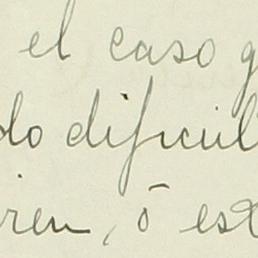 el caso q
do dificul
ren, ó est